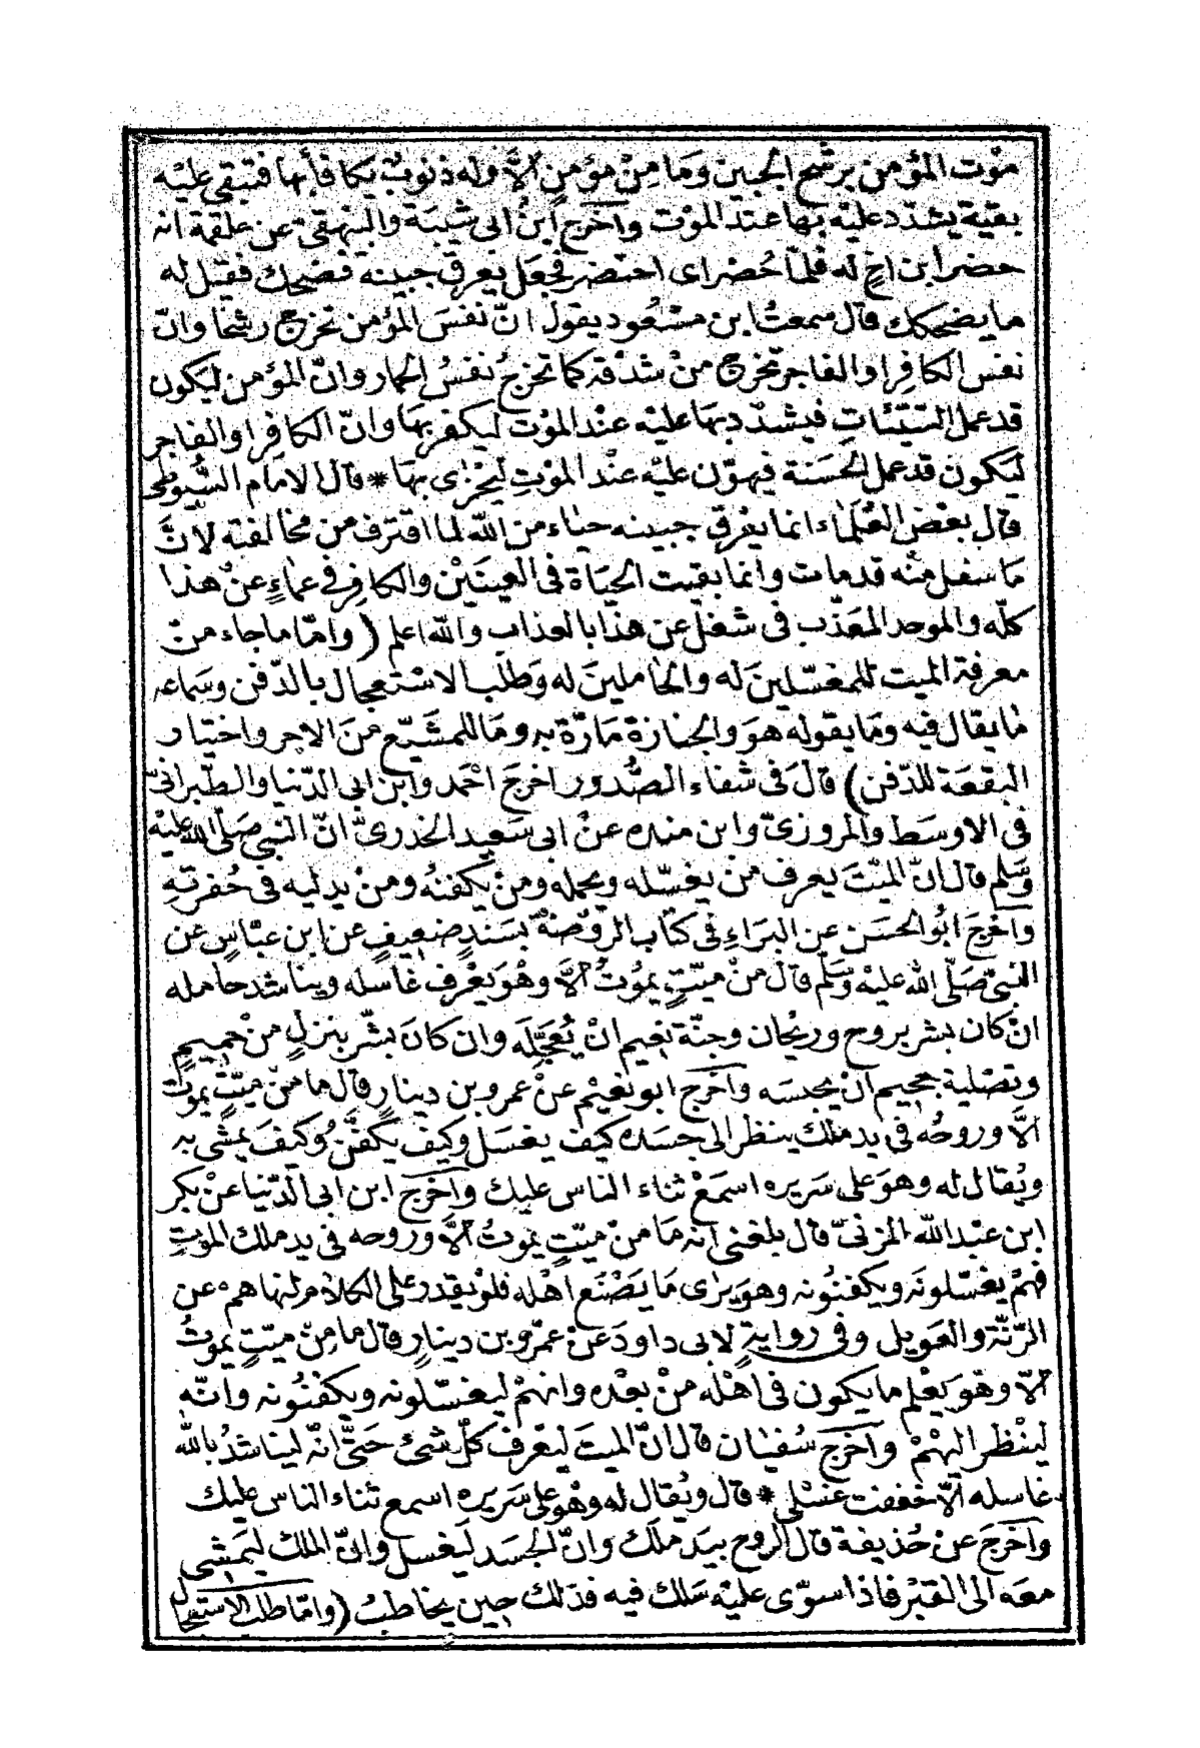 موْت المؤمن برشح الجبين وَمَا مِنْ مؤمنٍ الاَّ وله ذنوبٌ يكا فأ بها فتبقى عليْه
بقية يشدد عليْه بها عند الموْت وأخرج ابنُ ابى شيبَة والبيْهقى عن علقمة انه
حضر ابن اخٍ له فلمّا حُضر اى احتضر فجعَل يعرق جبينه فضحك فقيل له
ما يضحكك قال سمعتُ ابن مسْعُود يقول انّ نفسَ المؤمن تخرج رشحا وانّ
نفس الكافِر او الفاجر تخرج منْ شدْقه كما تخرجُ نفسُ الحمار وانّ المؤمن ليكون
قد عمل السّيّئاتِ فيشدّد بهَا عليْه عنْد الموْت ليكفر بهَا وانّ الكافِر او الفاجر
ليَكون قد عمل الحسَنة فيهوّن عليْه عنْد الموْتِ ليُجْزٰى بهَا * قال الامام السُّيوطى
قال بعْض العُلمَاء انما يعْرق جبينه حيَاء من اللّه لما اقترف من مخالفته لانَّ
مَا سفل منْه قد مات وانما بقيت الحيَاة فى العينَيْن والكافِر فى عماءٍ عنْ هذا
كلّه والموحد المعَذّب فى شغل عن هذا بالعذاب واللّه اعلم (وامّا ما جاء منْ
معرفة الميت للمغسّلينَ له والحَاملينَ له وَطلب الاسْتعجال بالدّفن وسَماعه
مَا يقال فيه وَمَا يقوله هوَ والجنازة مَارّة به وما للمشَيّع منَ الاجر واختيار
البقعَة للدّفن) قالَ فى شفاء الصُّدور اخرجَ احْمد وابن ابى الدّنيا والطّبرانىّ
فى الاوسَط والمروزىّ وابن منده عنْ ابى سَعيد الخدرىّ انّ النبىّ صَلّى اللّه عليْه
وسَّلم قال انّ الميّتَ يعرف منْ يغسّله ويحمله ومنْ يكفنُه ومنْ يدليه فى حُفرته
وَاخرجَ ابُو الحسَن عن البرَاءِ فى كتاب الرّوْضةُ بسَندٍ ضعيفٍ عن ابن عبّاسٍ عن
النبىّ صَلّى اللّه عليْه وسَلّم قال منْ ميّتٍ يموُتُ الاَّ وهُوَ يعْرف غاسله ويناشد حامله
انْ كان بشر بروح وريْحان وجنّة نعيم انْ يُعَجّلَه وان كانَ بشّر بنزلٍ منْ حميمٍ
وتصْلية جحيم انْ يحبسَه وأخرج ابو نعيْم عنْ عمرو بن دينارٍ قال ما منْ ميّتٍ يموت
الاَّ وروحُه فى يد ملك ينظر الى جسَده كيف يغسَل وكيْف يكفّنُ وكيفَ يمشى به
ويُقال له وهوَ على سَريره اسمَعْ ثناء الناس عليك وأخرج ابن ابى الدّنيا عنْ بكر
ابن عبْد اللّه المزنىّ قال بلغنى انه مَا منْ ميّتٍ يموتُ الاَّ وروحه فى يد ملك الموتِ
فهمْ يغسّلونه ويكفنُونه وهوَ يرٰى مَا يَصْنَع اهْله فلوْ يقدر على الكلام لنهاهم عن
الرّنّة والعَويل وفى روايةٍ لابى داودَ عَنْ عمْرو بن دينارٍ قال ما مِنْ ميّتٍ يموتُ
الاّ وهوَ يعْلم ما يكون فى اهْله منْ بعْده وانهمْ ليغسّلونه ويكفنُونه وانّه
لينْظر اليهْمْ وأخرجَ سُفيٰان قال انّ الميتَ ليَعْرف كلّ شئ حَتّى انّه ليناشدُ باللّه
غاسله الاّ خففت غسْلى * قال ويُقال له وهْو على سَريره اسمع ثناء الناس عليك
وأخرجَ عنْ حُذيفة قال الروح بيَد ملَك وانّ الجسَد ليَغسل وانّ الملك ليَمْشى
معَه الى القبْر فاذا سوّى عليْه سَلك فيه فذلك حين يخاطبُ (وامّا طلب الاستعجال